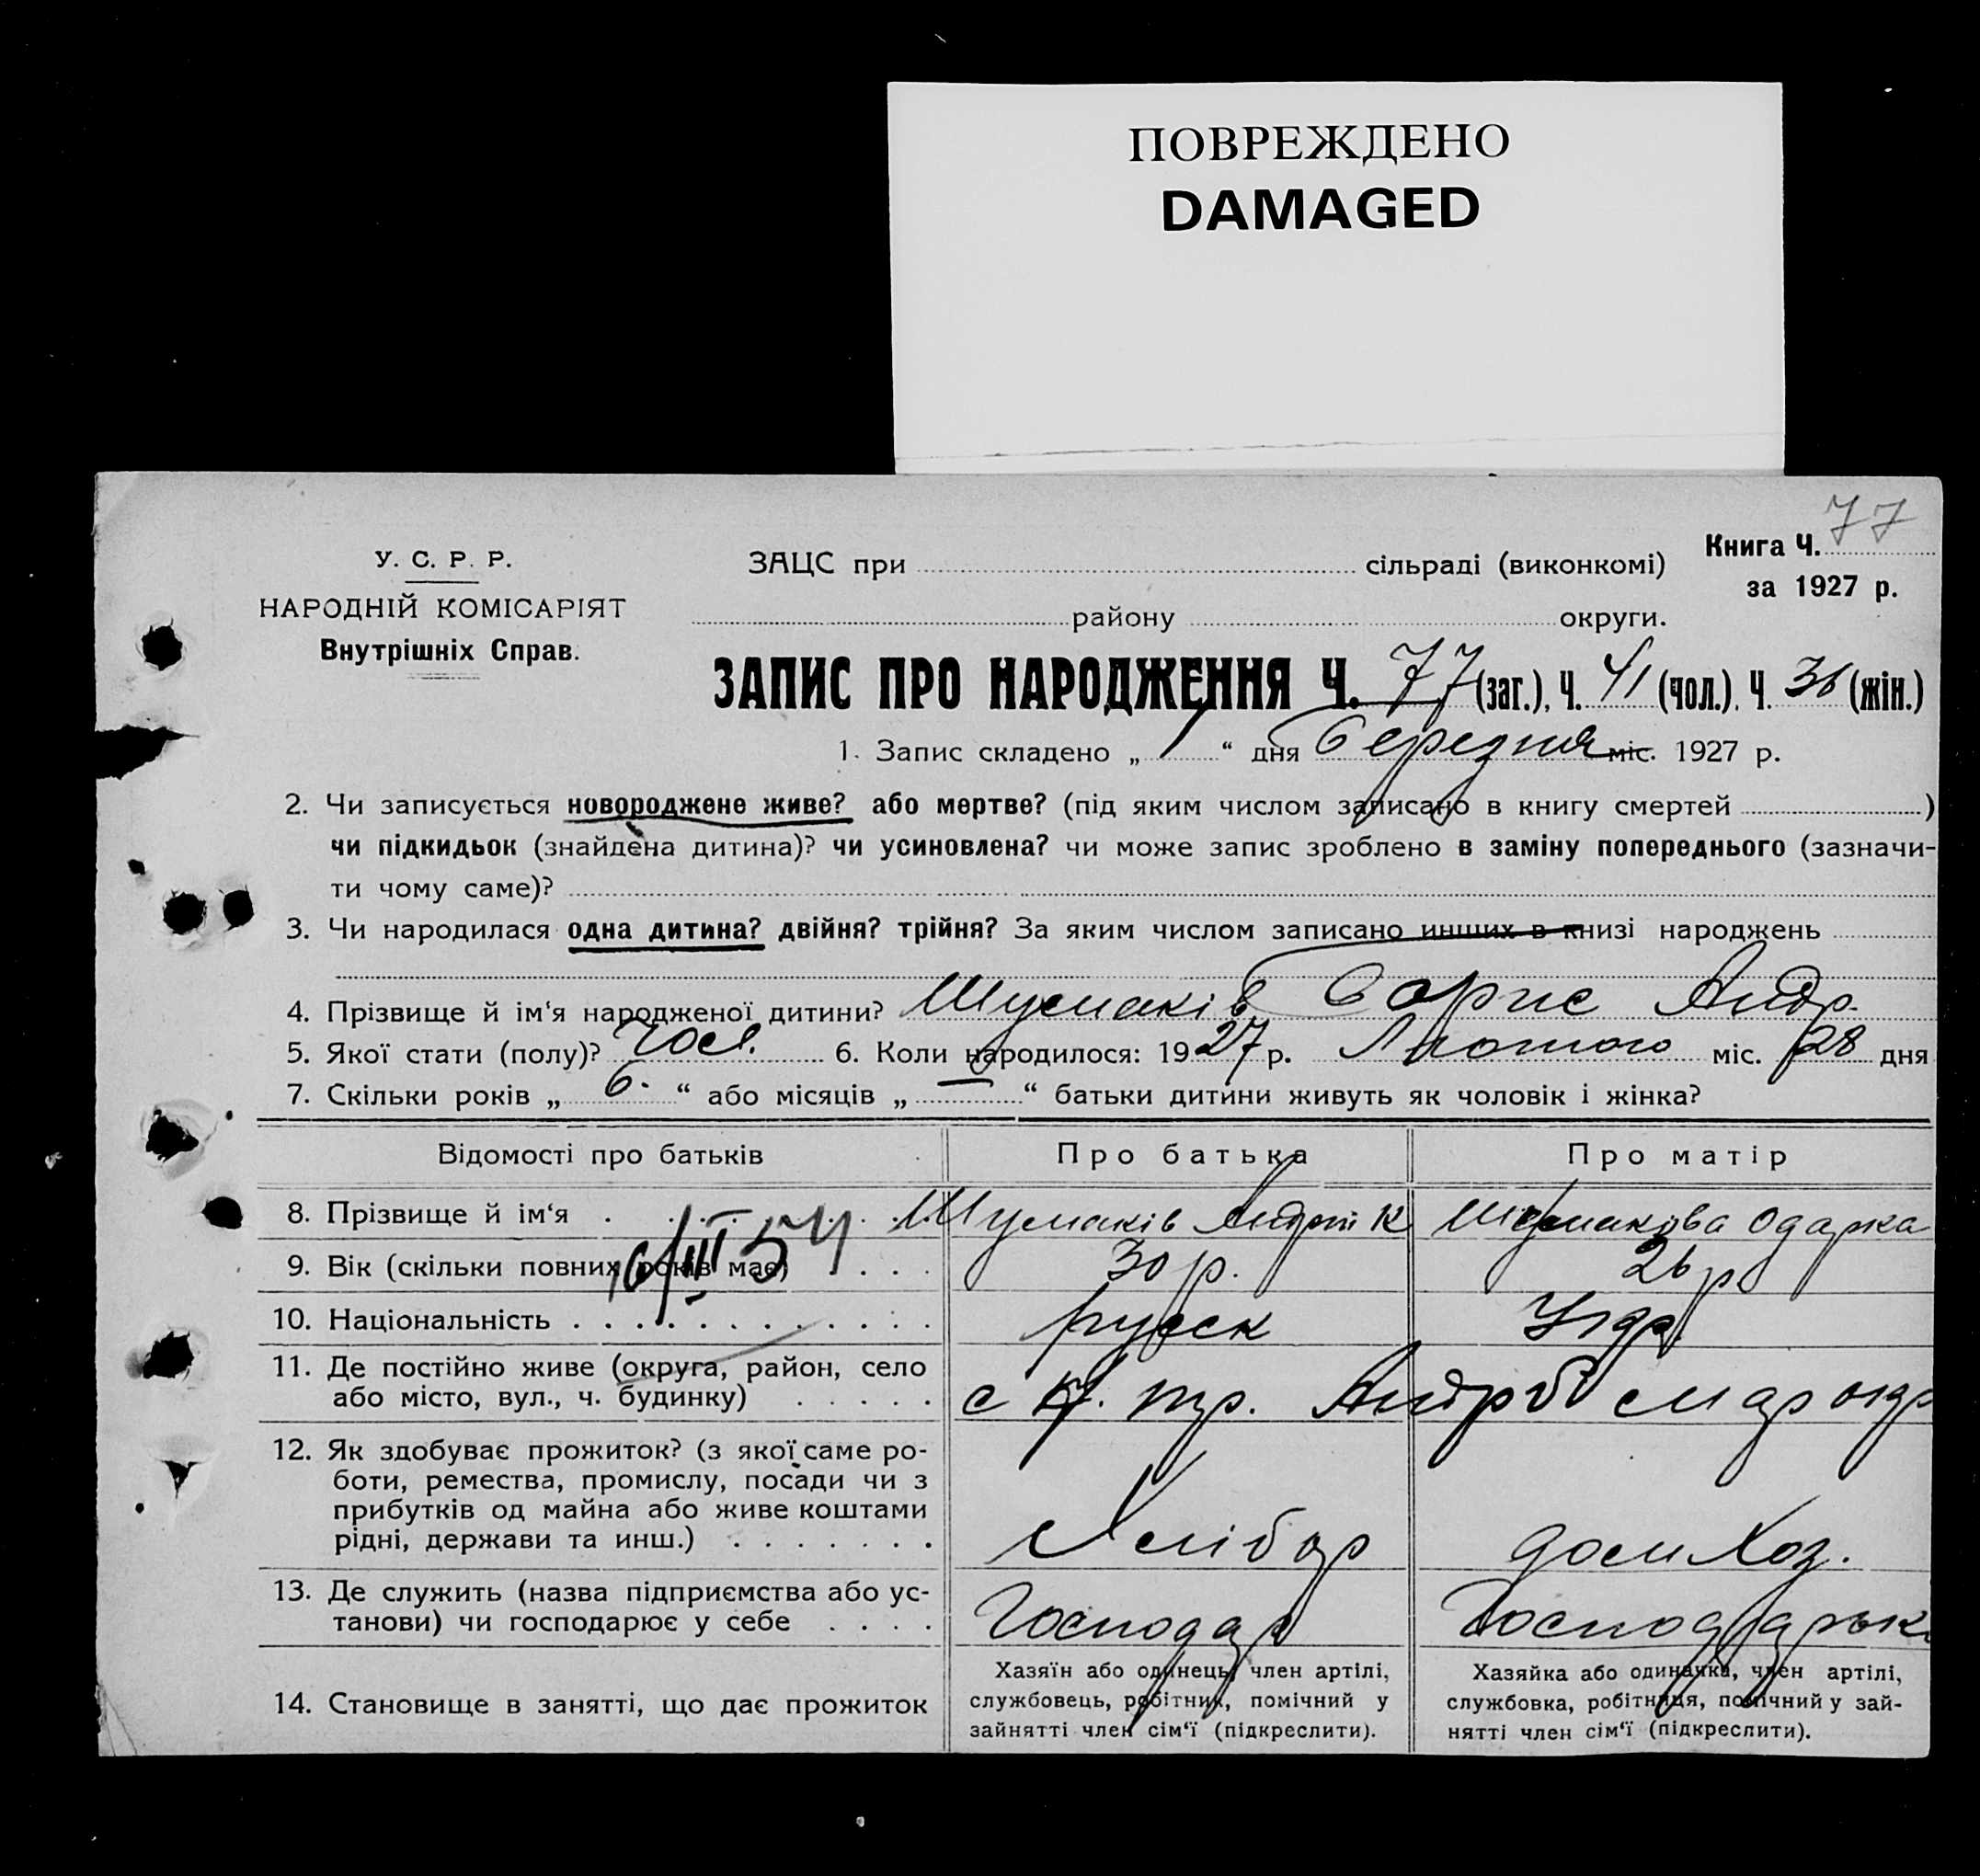 ПОВРЕЖДЕНО
DAMAGED
77
У. С. Р. Р.
НАРОДНІЙ КОМІСАРІЯТ
Внутрішніх Справ.
ЗАЦС при сільраді (виконкомі)
Книга Ч.
за 1927 р.
району округи.
ЗАПИС ПРО НАРОДЖЕННЯ Ч. 77 (заг.), Ч. 41 (чол.), Ч. 36 (жін.)
1. Запис складено „ 1 “ дня Березня міс. 1927 р.
2. Чи записується новороджене живе? або мертве? (під яким числом записано в книгу смертей )
чи підкидьок (знайдена дитина)? чи усиновлена? чи може запис зроблено в заміну попереднього (зазначи-
ти чому саме)?
3. Чи народилася одна дитина? двійня? трійня? За яким числом записано инших в книзі народжень
4. Прізвище й ім‘я народженої дитини? Шумаків Борис Андр.
5. Якої стати (полу)? Чол. 6. Коли народилося: 1927 р. Лютого міс. 28 дня
7. Скільки років „ 6. “ або місяців „ — “ батьки дитини живуть як чоловік і жінка?
Відомості про батьків Про батька Про матір
8. Прізвище й ім‘я Шумаків Андрій К Шумакова Одарка
16/III 54
9. Вік (скільки повних років має) 30 р. 26 р
10. Національність русск Укр.
11. Де постійно живе (округа, район, село
або місто, вул., ч. будинку)
12. Як здобуває прожиток? (з якої саме ро-
боти, ремества, промислу, посади чи з
прибутків од майна або живе коштами
рідні, держави та инш.) Хлібор дом Хоз.
13. Де служить (назва підприємства або ус-
танови) чи господарює у себе Господар Господарьк
14. Становище в занятті, що дає прожиток
Хазяїн або одинець, член артілі,
службовець, робітник, помічний у
зайнятті член сім‘ї (підкреслити).
Хазяйка або одиначка, член артілі,
службовка, робітниця, помічний у зай-
нятті член сім‘ї (підкреслити).